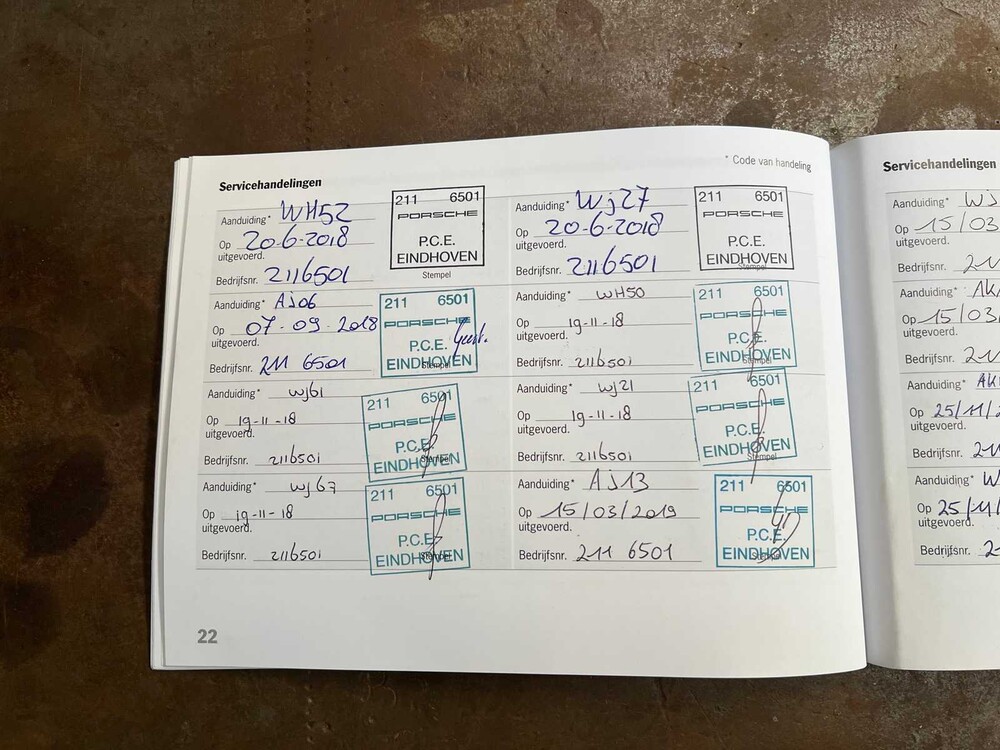 Servicehandelingen
* Code van handeling
Aanduiding* WH52
Op 20-6-2018
uitgevoerd.
Bedrijfsnr. 2116501
211 6501
PORSCHE
P.C.E.
EINDHOVEN
Stempel
Aanduiding* Wj27
Op 20-6-2018
uitgevoerd.
Bedrijfsnr. 2116501
211 6501
PORSCHE
P.C.E.
EINDHOVEN
Stempel
Aanduiding* AJ06
Op 07-09-2018
uitgevoerd.
Bedrijfsnr. 211 6501
211 6501
PORSCHE
P.C.E.
EINDHOVEN
Stempel
Aanduiding* WH50
Op 19-11-18
uitgevoerd.
Bedrijfsnr. 2116501
211 6501
PORSCHE
P.C.E.
EINDHOVEN
Stempel
Aanduiding* wj61
Op 19-11-18
uitgevoerd.
Bedrijfsnr. 2116501
211 6501
PORSCHE
P.C.E.
EINDHOVEN
Stempel
Aanduiding* wj21
Op 19-11-18
uitgevoerd.
Bedrijfsnr. 2116501
211 6501
PORSCHE
P.C.E.
EINDHOVEN
Stempel
Aanduiding* wj67
Op 19-11-18
uitgevoerd.
Bedrijfsnr. 2116501
211 6501
PORSCHE
P.C.E.
EINDHOVEN
Stempel
Aanduiding* AJ13
Op 15/03/2019
uitgevoerd.
Bedrijfsnr. 211 6501
211 6501
PORSCHE
P.C.E.
EINDHOVEN
Stempel
22
Servicehandelingen
Aanduiding* WJ
Op 15/03
uitgevoerd.
Bedrijfsnr. 21
Aanduiding* AK
Op 15/03/
uitgevoerd.
Bedrijfsnr. 21
Aanduiding* AK
Op 25/11/2
uitgevoerd.
Bedrijfsnr. 21
Aanduiding* W
Op 25/11/
uitgevoerd.
Bedrijfsnr. 2